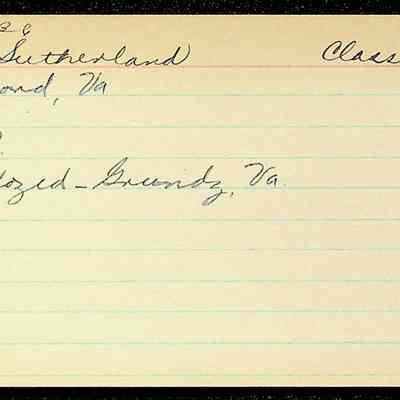 Sutherland Class
ond, Va
ozed - Grundy, Va.